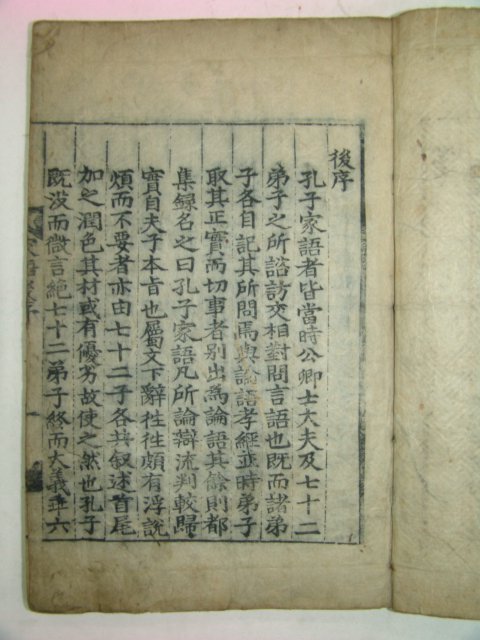 後序
孔子家語者皆當時公卿士大夫及七十二
弟子之所諮訪交相對問言語也既而諸弟
子各自記其所問焉與論語孝經並時弟子
取其正實而切事者別出為論語其餘則都
集錄名之曰孔子家語凡所論辯流判較歸
實自夫子本旨也屬文下辭徃徃頗有浮說
煩而不要者亦由七十二子各共叙述首尾
加之潤色其材或有優劣故使之然也孔子
既沒而微言絕七十二弟子終而大義乖六
家語後序